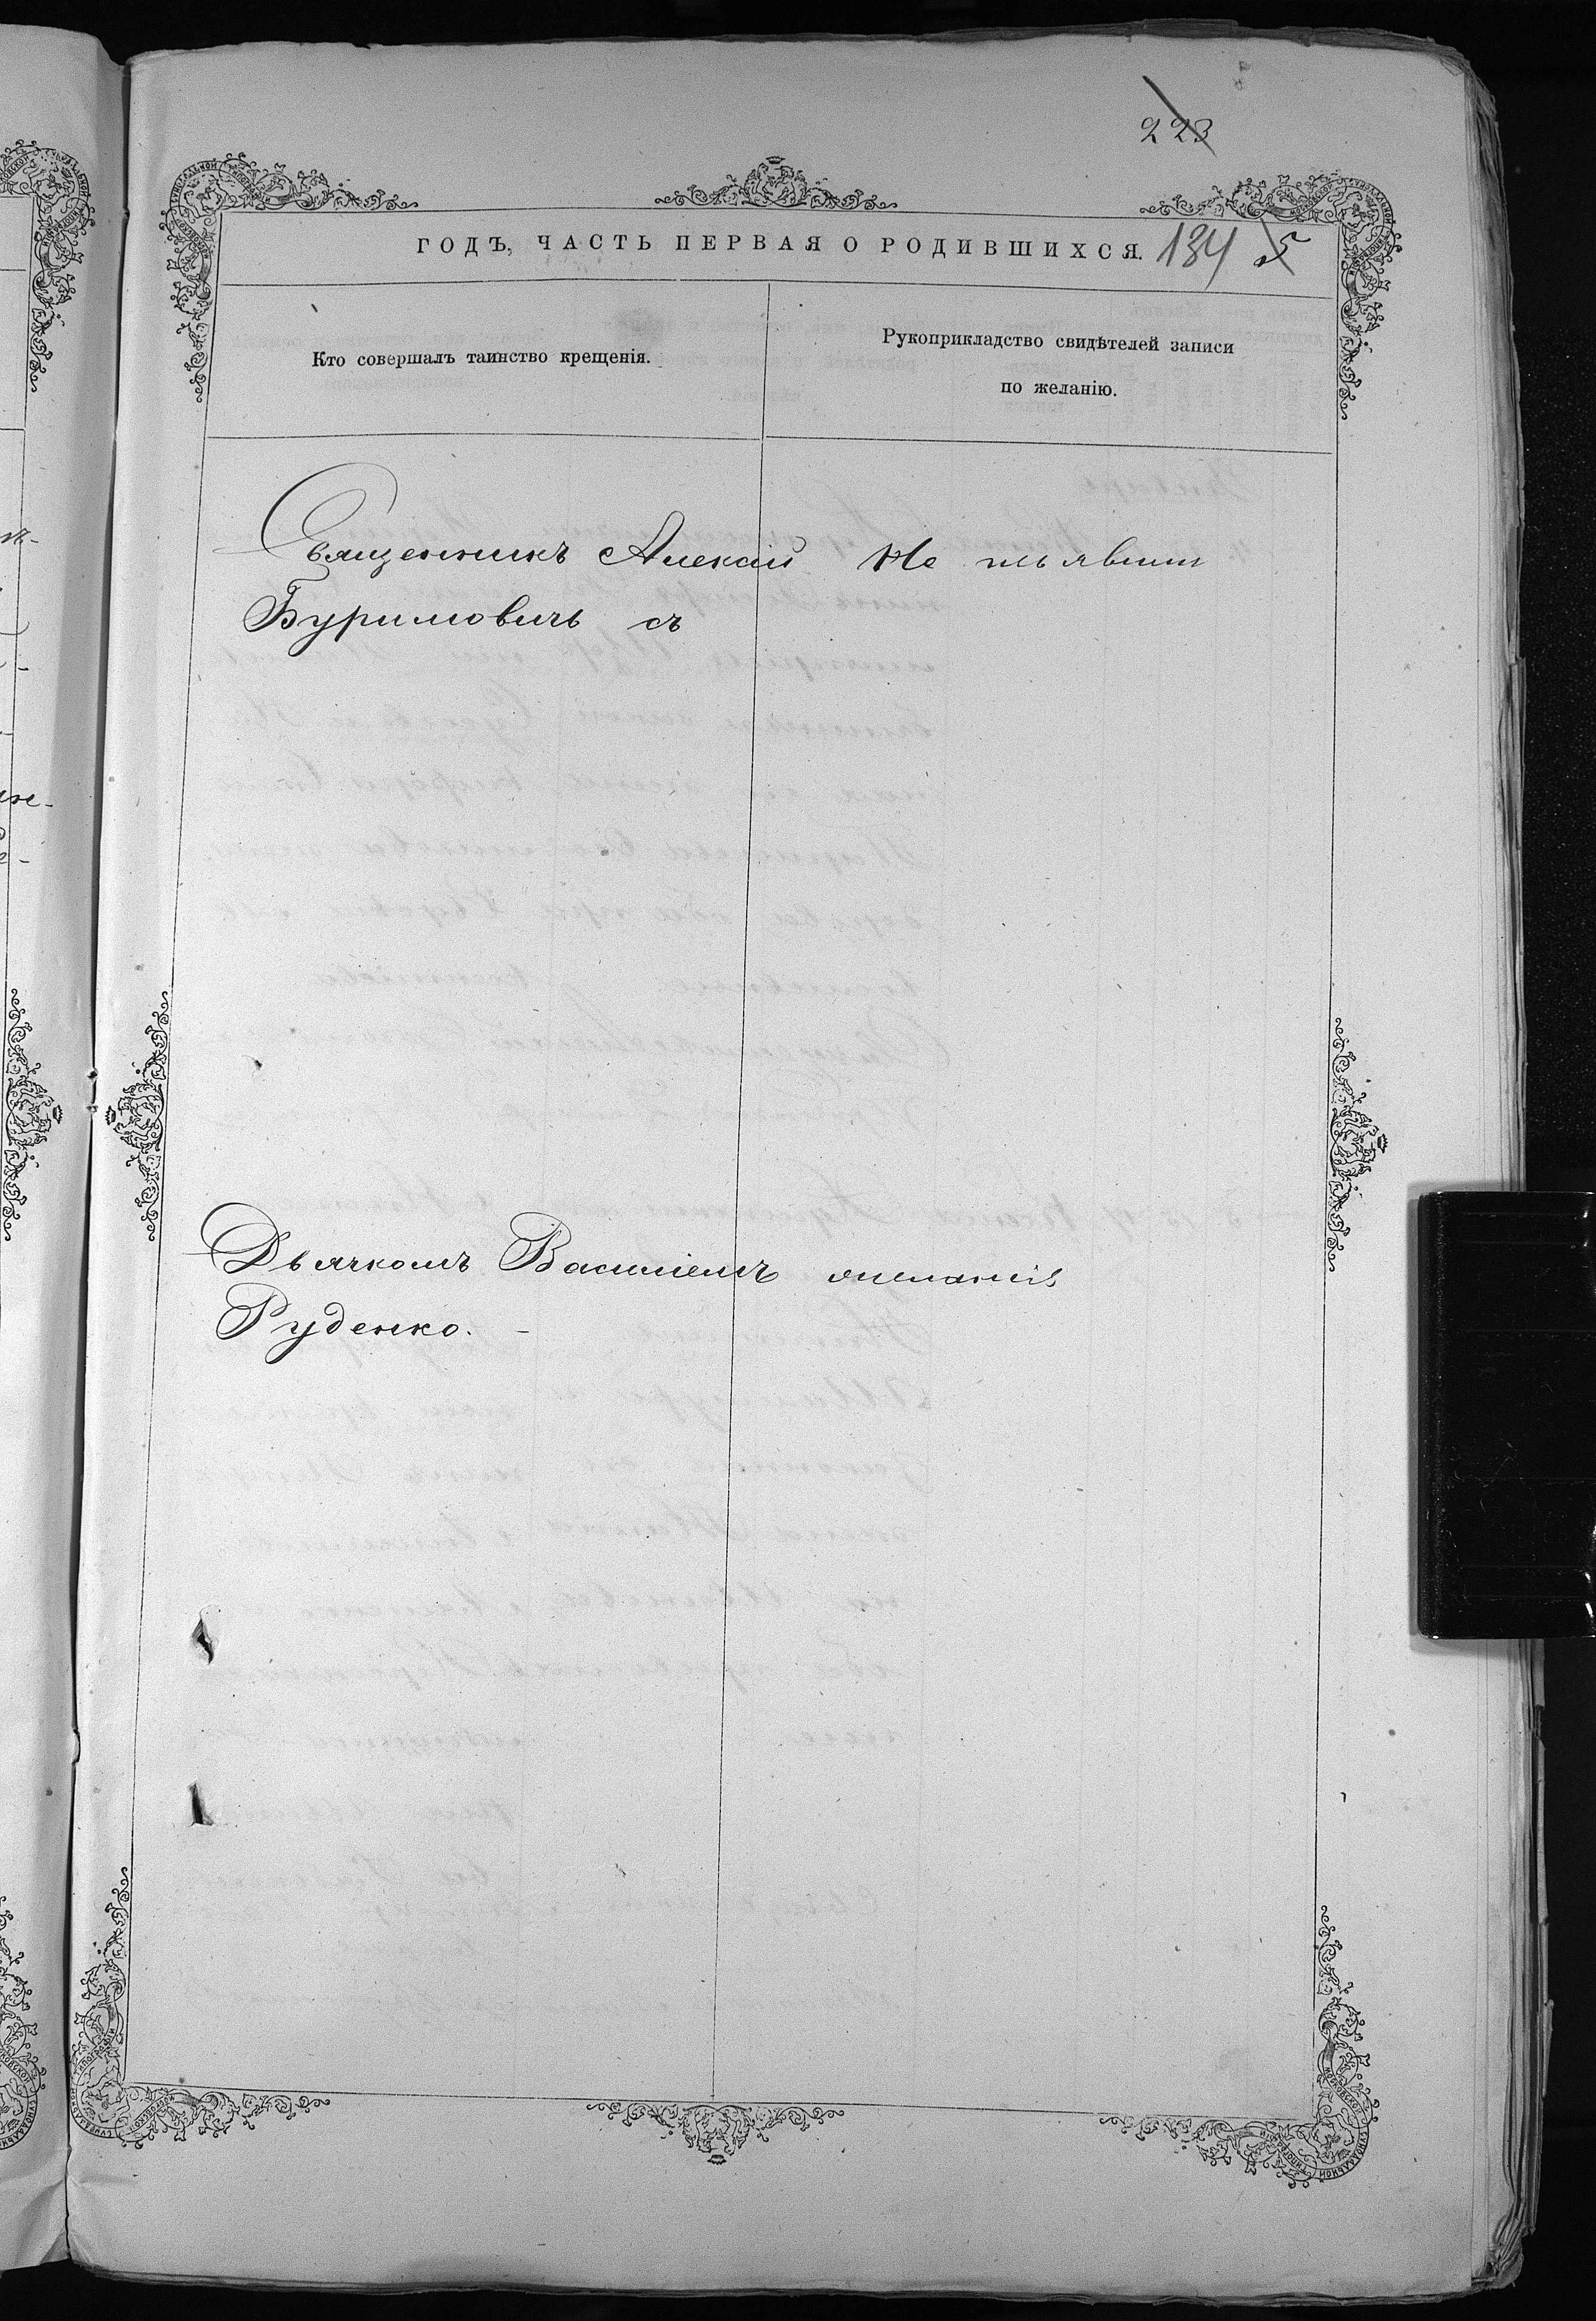 223
ГОДЪ, ЧАСТЬ ПЕРВАЯ О РОДИВШИХСЯ. 134 5
Кто совершалъ таинство крещенія.
Рукоприкладство свидѣтелей записи
по желанію.
Священникъ Алексій
Буримовичъ съ
Дьячкомъ Василіемъ
Руденко. -
Не изъявили
желанія